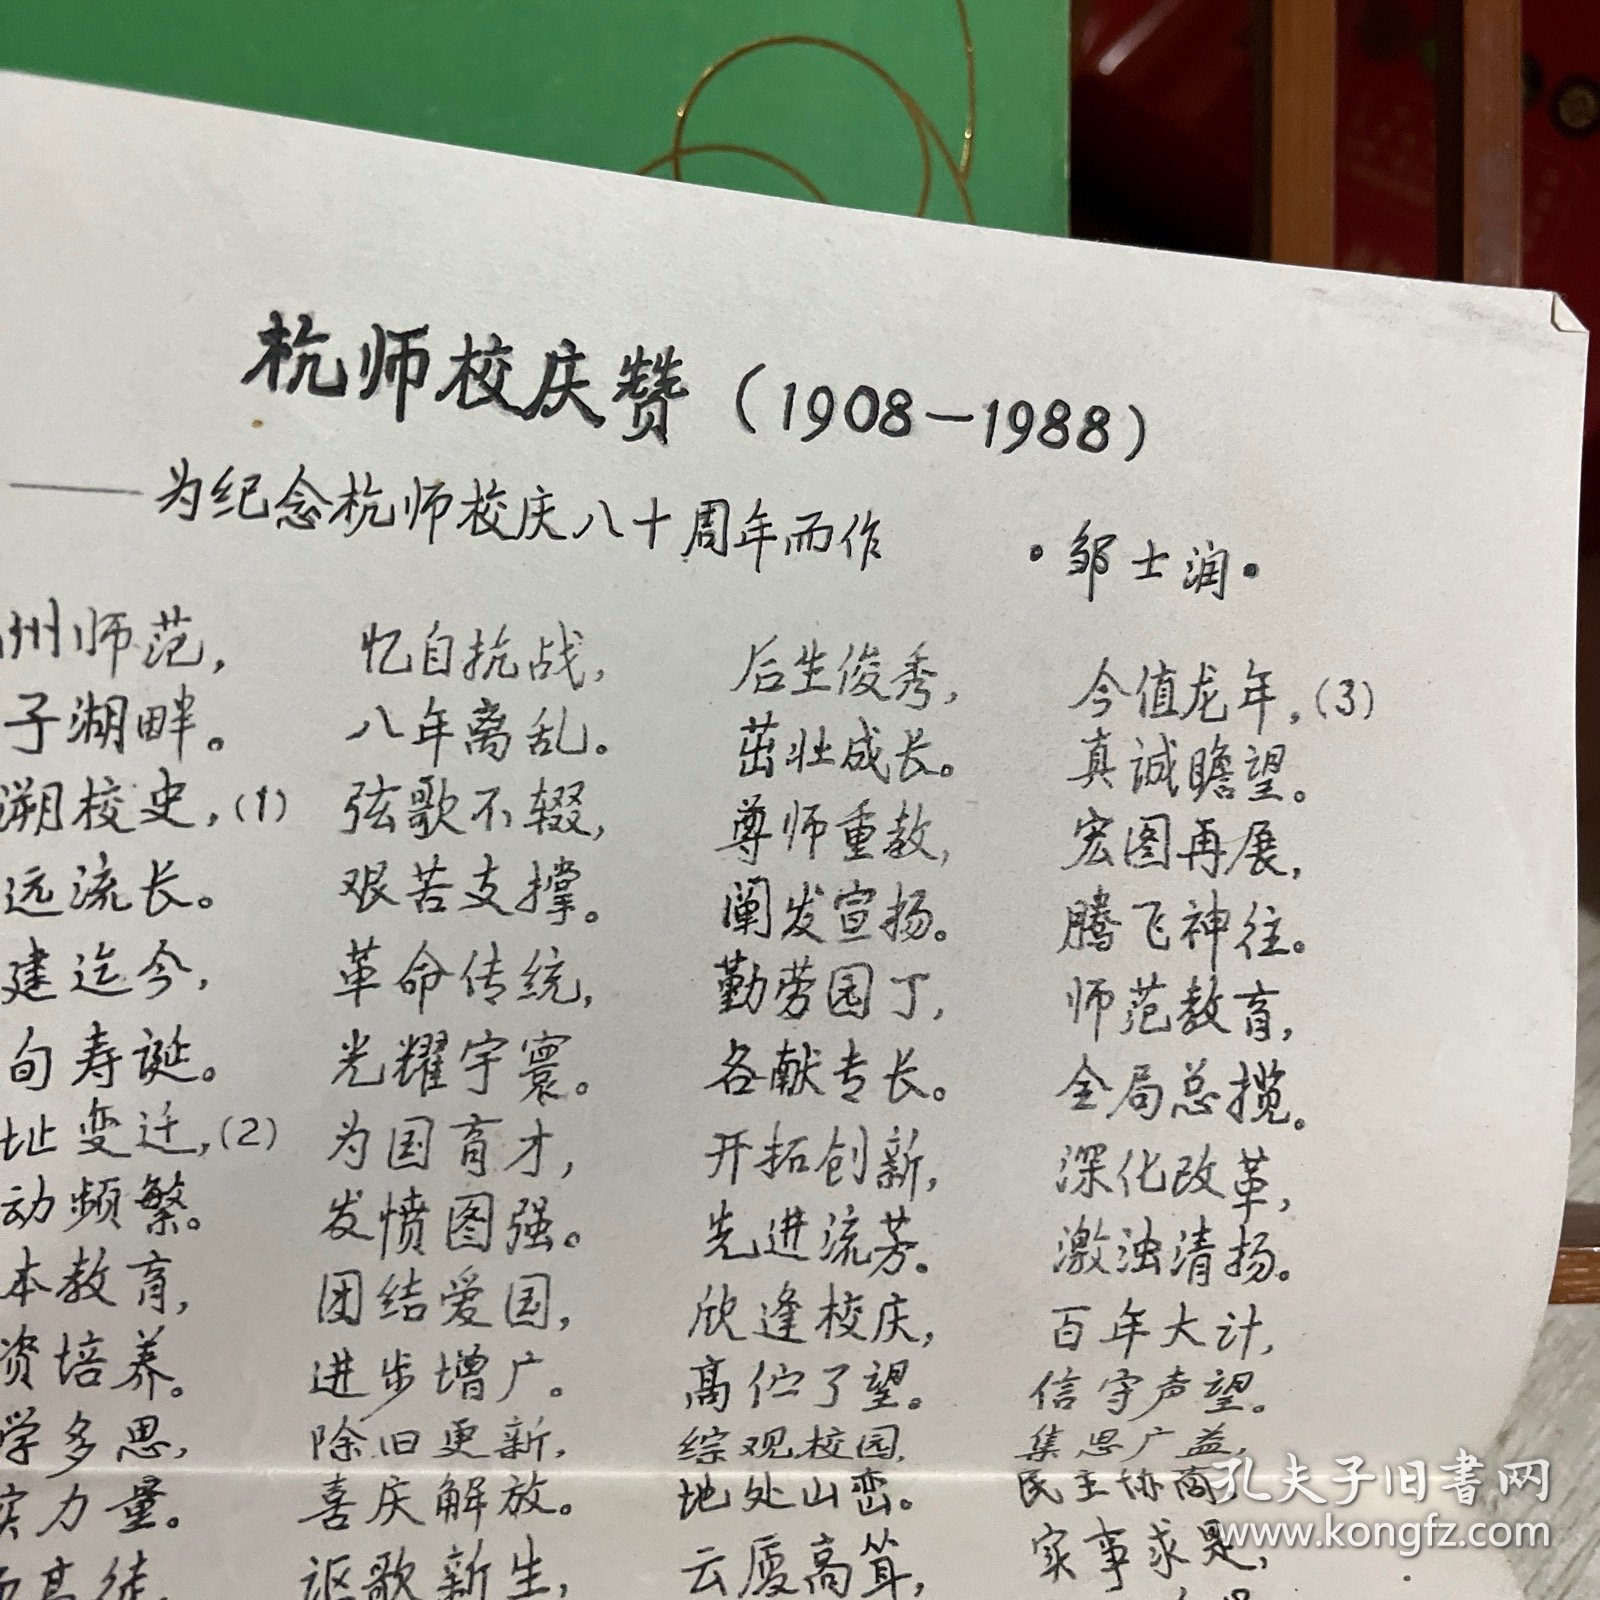 杭师校庆赞（1908－1988）
——为纪念杭师校庆八十周年而作
·邹士润·
州师范，
子湖畔。
溯校史，(1)
远流长。
建迄今，
旬寿诞。
址变迁，(2)
动频繁。
本教育，
资培养。
学多思，
实力量。
高徒，
忆自抗战，
八年离乱。
弦歌不辍，
艰苦支撑。
革命传统，
光耀宇寰。
为国育才，
发愤图强。
团结爱国，
进步增广。
除旧更新，
喜庆解放。
讴歌新生，
后生俊秀，
茁壮成长。
尊师重教，
阐发宣扬。
勤劳园丁，
各献专长。
开拓创新，
先进流芳。
欣逢校庆，
高伫了望。
综观校园，
地处山峦。
云厦高耸，
今值龙年，(3)
真诚瞻望。
宏图再展，
腾飞神往。
师范教育，
全局总揽。
深化改革，
激浊清扬。
百年大计，
信守声望。
集思广益，
民主协商，
实事求是，
孔夫子旧书网
www.kongfz.com